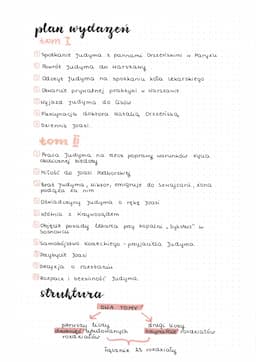 plan wydarzeń
tom I
1 Spotkanie Judyma z pannami Orzeńskimi w Paryżu
2 Powrót Judyma do Warszawy
3 Odczyt Judyma na spotkaniu koła lekarskiego
4 Otwarcie prywatnej praktyki w Warszawie
5 Wyjazd Judyma do Cisów
6 doktora Natalią Orzeńską
7 Dziennik Joasi
tom II
1 Praca Judyma na rzecz poprawy warunków życia
okolicznej biedoty
2 Miłość do Joasi Podborskiej
3 Brat Judyma, Wiktor, emigruje do Szwajcarii, żona
podąża za nim
4 Oświadczyny Judyma o rękę Joasi
5 Kłótnia z Krzywosądem
6 Objęcie posady lekarza przy kopalni „Sykstus” w
Sosnowcu
7 Samobójstwo Korzeckiego - przyjaciela Judyma
8 Przyjazd Joasi
9 Decyzja o rozstaniu
10 Rozpacz i bezsilność Judyma
struktura
DWA TOMY
pierwszy liczy
tytułowanych
rozdziałów
drugi liczy
rozdziałów
łącznie 23 rozdziały